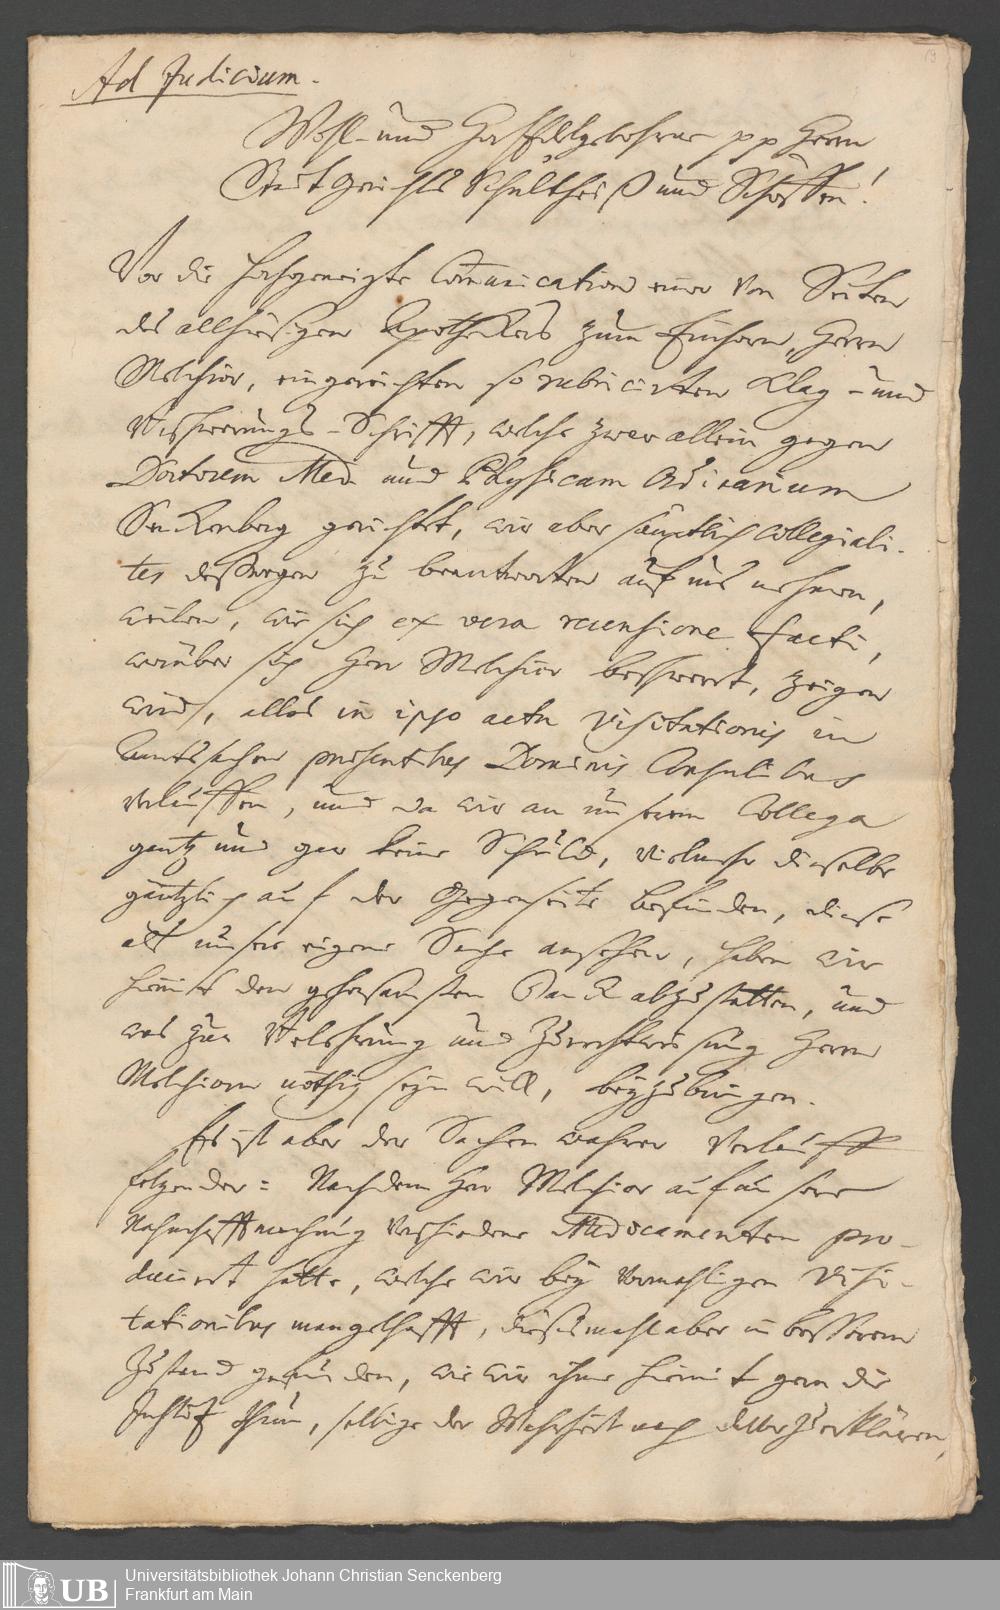 19
Ad Judicium.
Wohl- und HochEdelgebohrne pp Herrn
Stadt Gerichts Schultheiß und Schöffen!
Vor die hochgeneigte Communication einer von Seiten
des allhiesigen Apothekers zum Einhorn, Herrn
Melchior, eingereichten so rubricirten Klag- und
Beschwerungs-Schrifft, welche zwar allein gegen
Doctorem Med. und Physicum Ordinarium
Senckenberg gerichtet, wir aber sämtlich collegiali-
ter deßwegen zu beantworten auf uns nehmen,
weilen, wie sich ex vera recensione facti,
worüber sich Herr Melchior beschwert, zeigen
wird, alles in ipso actu visitationis in
Amtssachen praesentibus Dominis Consulibus
verlauffen, und da wir an unserem Collega
gantz und gar keine Schuld, vielmehr dieselbe
gäntzlich auf der Gegenseite befinden, diese
als unsere eigene Sache ansehen, haben wir
hiemit den gehorsamsten Danck abzustatten, und
was zur Belehrung und Zurechtweisung Herrn
Melchiors nöthig seyn will, beyzubringen.
Es ist aber der Sachen wahrer Verlauff
folgender: Nachdem Herr Melchior auf unsere
Nahmhafftmachung verschiedene Medicamenten pro-
ducirt hatte, welche wir bey vormahligen Visi-
tationibus mangelhafft, dießmahl aber in besserem
Zustand gefunden, wie wir ihme hiemit gern die
Justiz thun, solches der Wahrheit nach zu erklären,
UB
Universitätsbibliothek Johann Christian Senckenberg
Frankfurt am Main